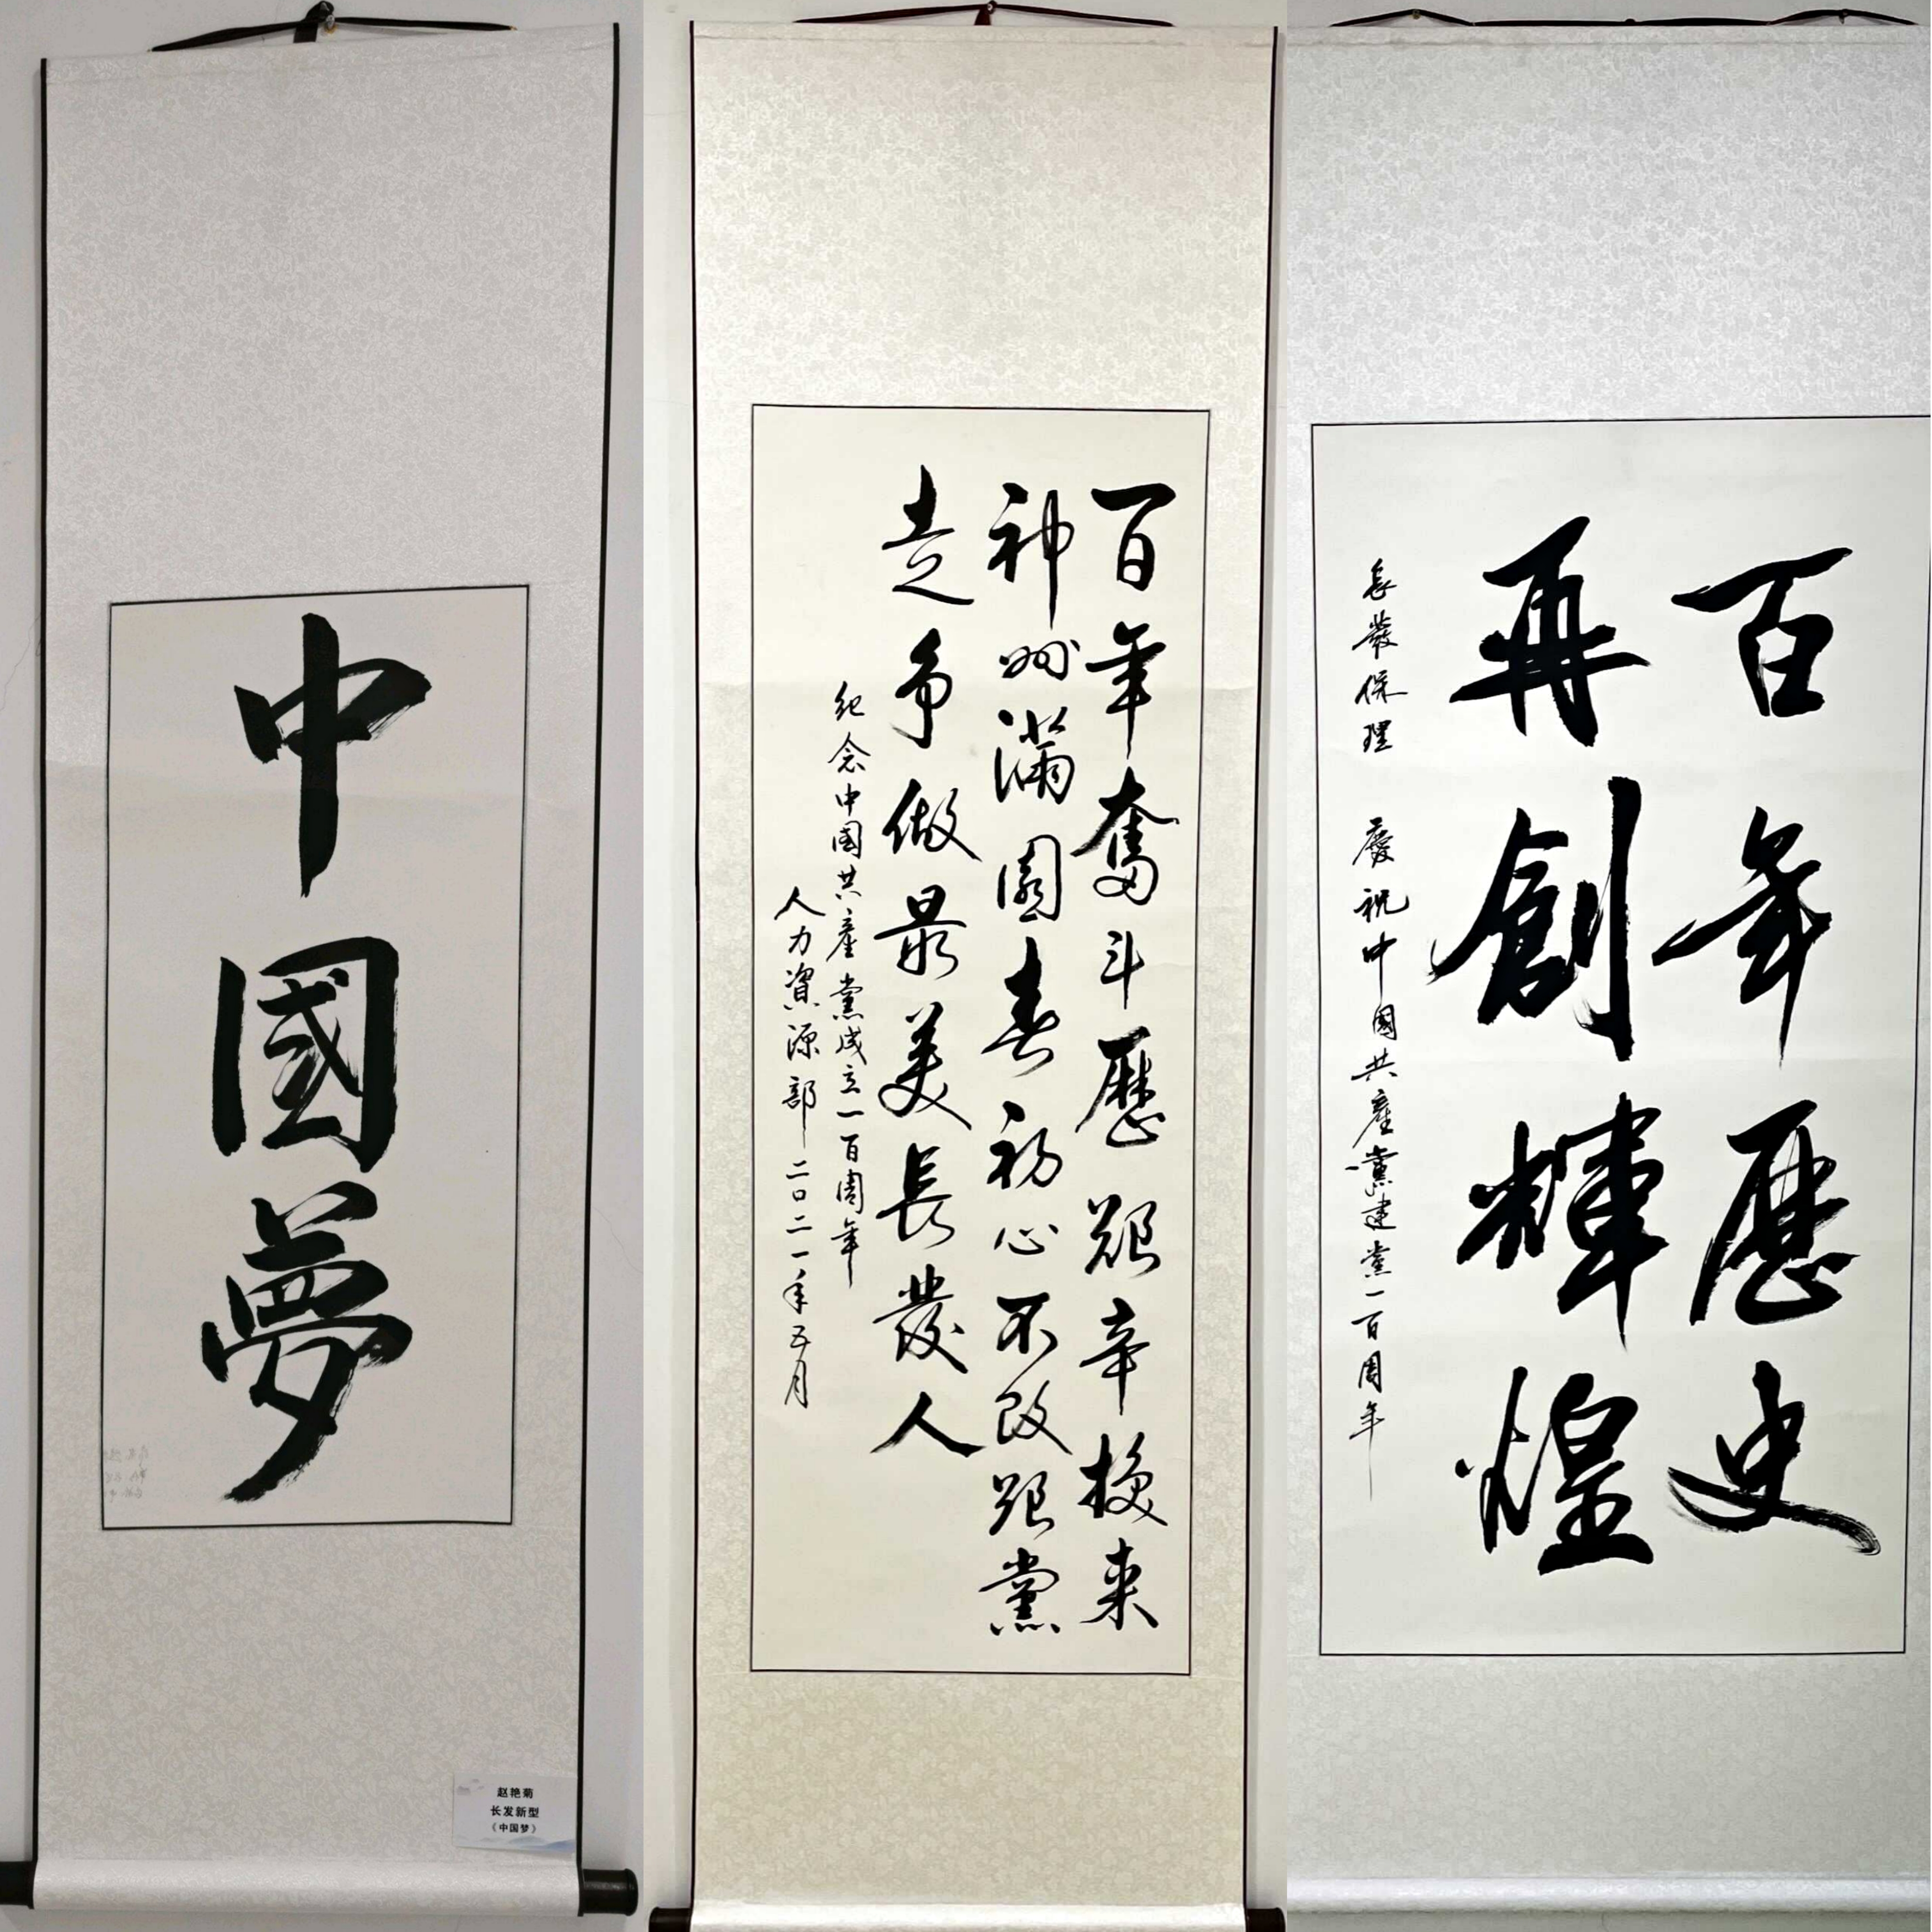 中國夢
赵艳菊
长发新型
《中国梦》
百年奮斗歷艱辛換来
神州滿園春初心不改跟黨
走争做最美長發人
紀念中國共產黨成立一百周年
人力資源部二〇二一年五月
百年歷史
再創輝煌
長發保理 慶祝中國共產黨建黨一百周年